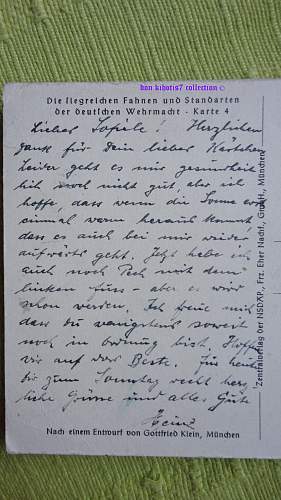 don kihotis7 collection ©
Die siegreichen Fahnen und Standarten
der deutschen Wehrmacht - Karte 4
Lieber ! Herzlichen
Dank für Dein liebes Kärtchen
Leider geht es mir gesundheit
lich noch nicht gut, aber ich
hoffe, dass wenn die Sonne erst
einmal warm heraus kommt,
dass es auch bei mir wieder
aufwärts geht. Jetzt habe ich
auch noch Pech mit dem
linken Fuss - aber es wird
schon werden. Ich freue mich
dass du wenigstens soweit
noch in Ordnung bist. Hoffen
wir auf das Beste. Für heute
dir zum Sonntag recht herz
liche Grüsse und alles Gute
Heinz
Nach einem Entwurf von Gottfried Klein, München
Zentralverlag der NSDAP., Frz. Eher Nachf., GmbH., München